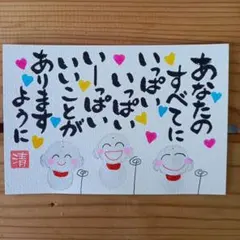 あなたの
すべてに
いっぱい
いっぱい
いーっぱい
いいことが
あります
ように
清